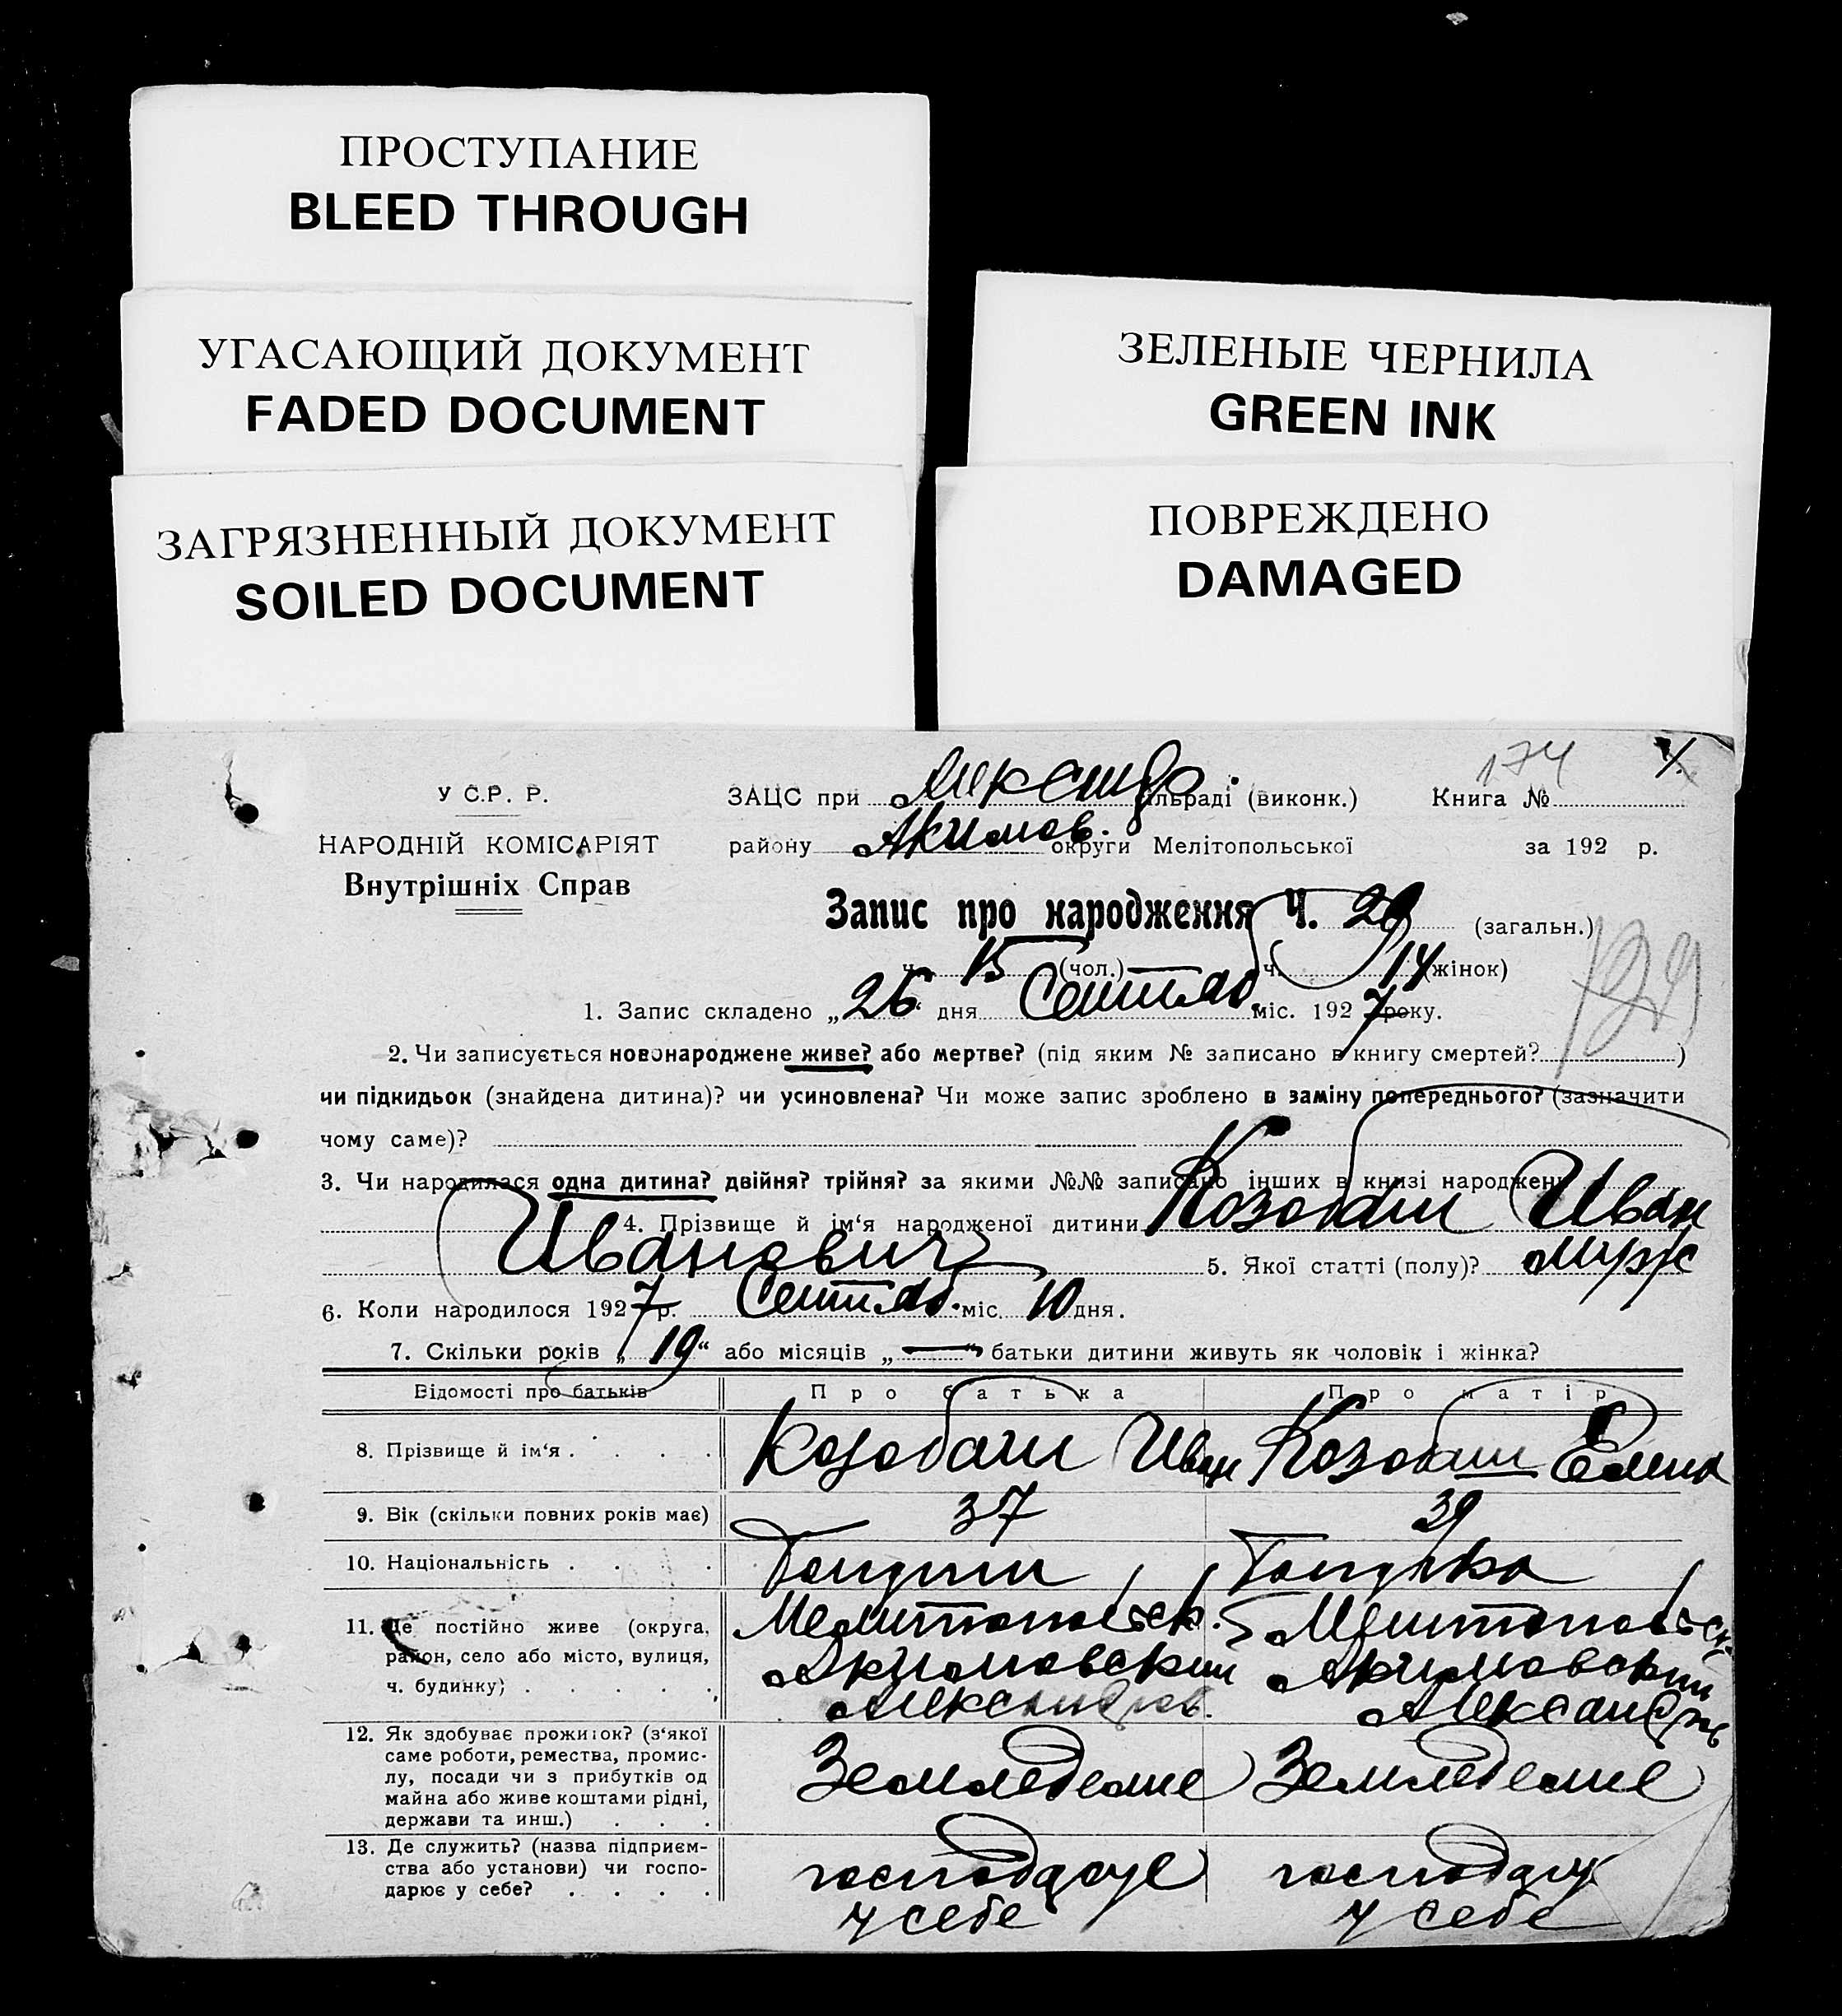 ПРОСТУПАНИЕ
BLEED THROUGH
УГАСАЮЩИЙ ДОКУМЕНТ
FADED DOCUMENT
ЗЕЛЕНЫЕ ЧЕРНИЛА
GREEN INK
ЗАГРЯЗНЕННЫЙ ДОКУМЕНТ
SOILED DOCUMENT
ПОВРЕЖДЕНО
DAMAGED
174
У С.Р. Р.
ЗАЦС при Александр. ільраді (виконк.) Книга №
НАРОДНІЙ КОМІСАРІЯТ
Внутрішніх Справ
району Акимов. округи Мелітопольської за 192 р.
Запис про народження Ч. 29 (загальн.)
ч. 15 (чол.) ч. 14 (жінок)
1. Запис складено „26“ дня Сентяб. міс. 1927 року.
2. Чи записується новонароджене живе? або мертве? (під яким № записано в книгу смертей? )
чи підкидьок (знайдена дитина)? чи усиновлена? Чи може запис зроблено в заміну попереднього? (зазначити
чому саме)?
3. Чи народилася одна дитина? двійня? трійня? за якими №№ записано інших в книзі народжень
4. Прізвище й ім‘я народженої дитини Козобаш Иван
Иванович 5. Якої статті (полу)? муж
6. Коли народилося 1927 р. Сентяб. міс. 10 дня.
7. Скільки років „19“ або місяців „—“ батьки дитини живуть як чоловік і жінка?
Відомості про батьків Про батька Про матір
8. Прізвище й ім‘я . . . . . Козобаш Иван Козобаш Елена
9. Вік (скільки повних років має) 37 39
10. Національність . . . .
11. Де постійно живе (округа, район, село або місто, вулиця, ч. будинку) . . . . .
Мелитопольск. Мелитопольск.
Акимовский Акимовский
Александров. Александров
12. Як здобуває прожиток? (з‘якої саме роботи, ремества, промислу, посади чи з прибутків од майна або живе коштами рідні, держави та инш.) . . .
Земледелие Земледелие
13. Де служить? (назва підприємства або установи) чи господарює у себе? . . . .
господарує господарує
у себе у себе